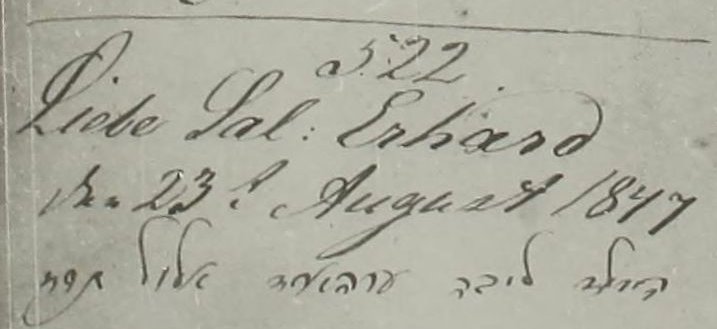 522.
Liebe Sal: Erhard
den 23t August 1847
הילד ליבה ערהארד אלול